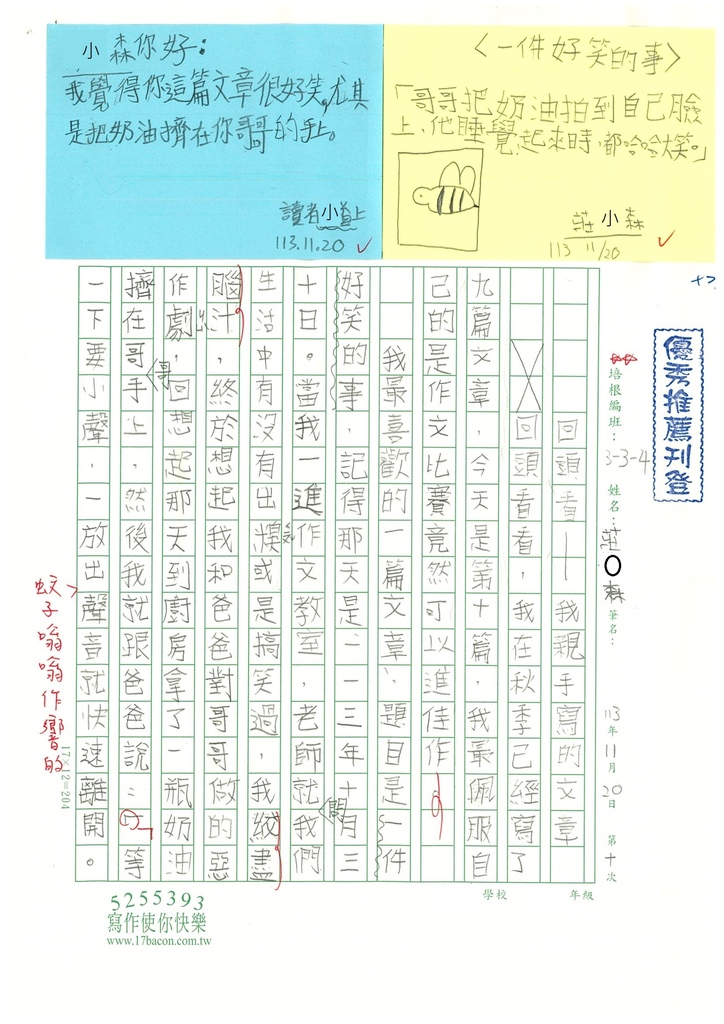 小森你好：
我覺得你這篇文章很好笑，尤其
是把奶油擠在你哥哥的手上。
讀者小益上
113.11.20
〈一件好笑的事〉
「哥哥把奶油拍到自己臉
上，他睡覺起來時，都哈哈大笑。」
莊小森
113 11/20
優秀推薦刊登
培根編班：3-3-4 姓名：莊○森 筆名： 113年11月20日 第十次
回頭看—我親手寫的文章
回頭看看，我在秋季已經寫了
九篇文章，今天是第十篇，我最佩服自
己的是作文比賽竟然可以進佳作。
我最喜歡的一篇文章，題目是一件
好笑的事，記得那天是一一三年十月三
十日。當我一進作文教室，老師就問我們
生活中有沒有出糗或是搞笑過，我絞盡
腦汁，終於想起我和爸爸對哥哥做的惡
作劇，回想起那天到廚房拿了一瓶奶油
擠在哥哥手上，然後我就跟爸爸說：「等
一下要小聲，一放出聲音就快速離開。
蚊子嗡嗡作響的
17×12=204
學校 年級
5255393
寫作使你快樂
www.17bacon.com.tw